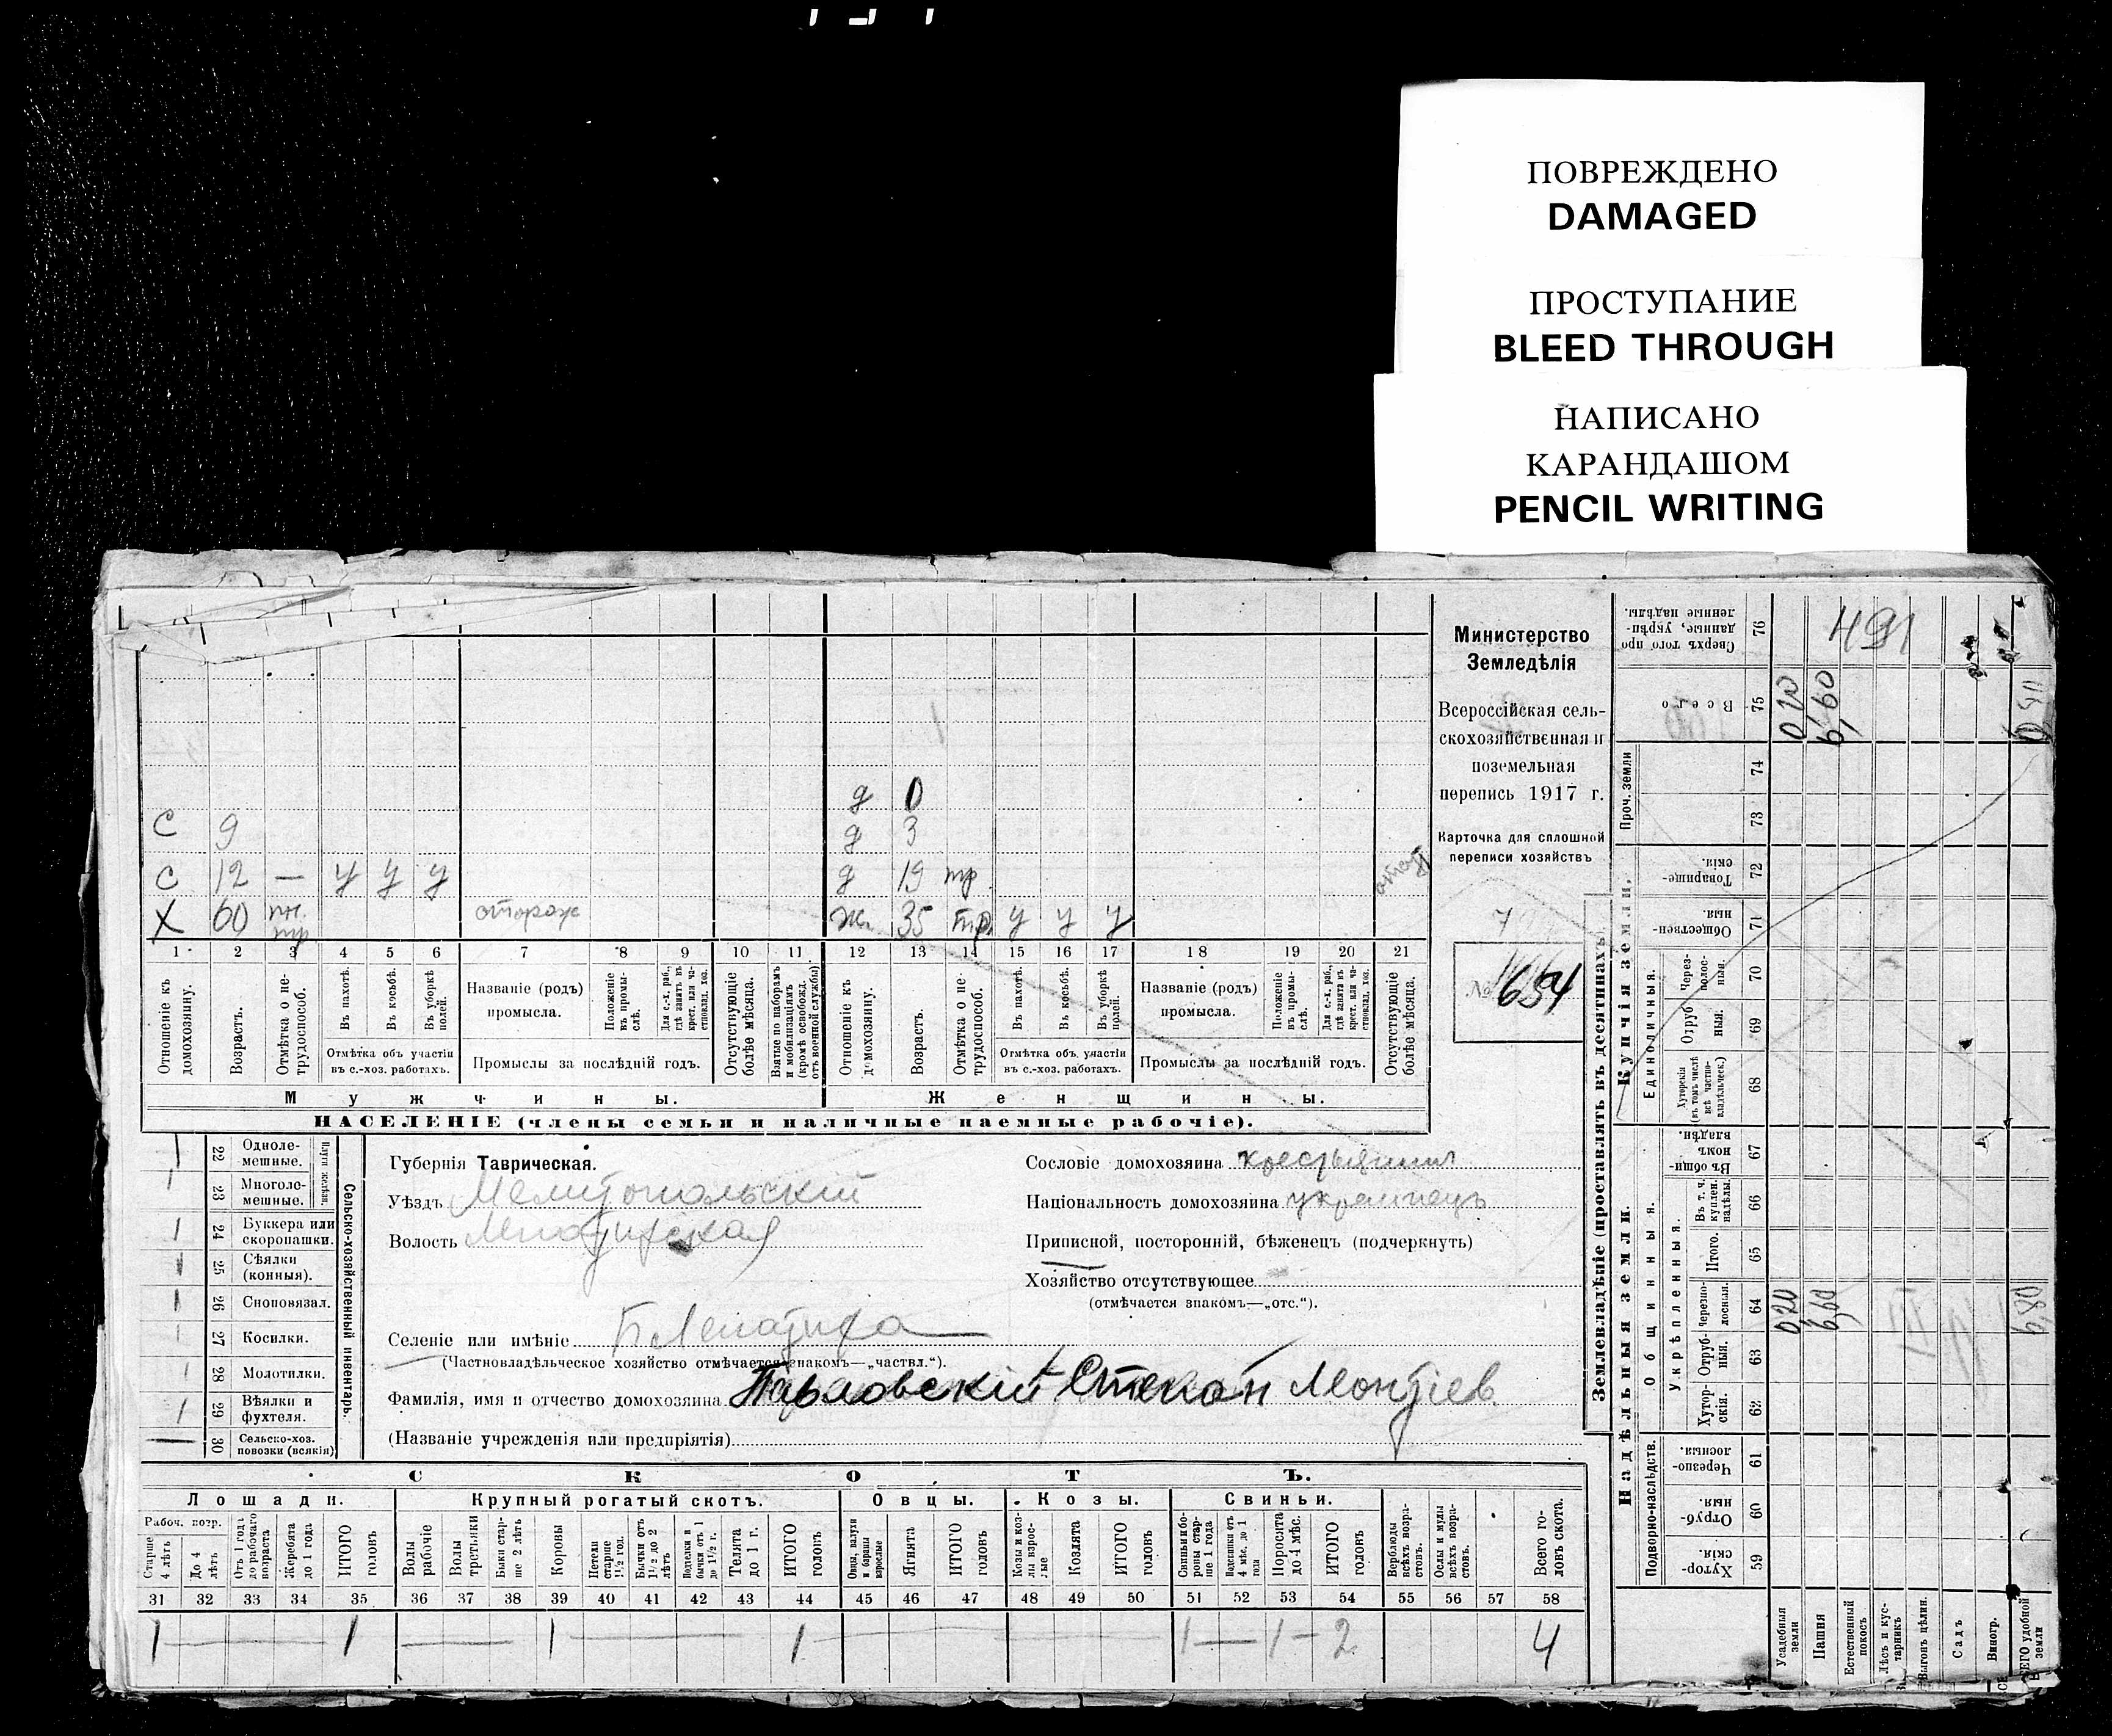 ПОВРЕЖДЕНО
DAMAGED
ПРОСТУПАНИЕ
BLEED THROUGH
НАПИСАНО
КАРАНДАШОМ
PENCIL WRITING
Министерство
Земледѣлія
Всероссійская сель-
скохозяйственная и
поземельная
перепись 1917 г.
Карточка для сплошной
переписи хозяйствъ
№ 654
д 0
С 9 д 3
С 12 — у у у д 19 тр.
Х 60 пн. тр сторож ж. 35 тр. у у у
1 2 3 4 5 6 7 8 9 10 11 12 13 14 15 16 17 18 19 20 21
Отношеніе къ домохозяину.
Возрастъ.
Отмѣтка о не-трудоспособ.
Въ пахотѣ.
Въ косьбѣ.
Въ уборкѣ полей.
Отмѣтка объ участіи
въ с.-хоз. работахъ.
Названіе (родъ)
промысла.
Положеніе въ промы-слѣ.
Для с.-х. раб., гдѣ занятъ въ крест. или ча-стновлад. хоз.
Промыслы за послѣдній годъ.
Отсутствующіе болѣе мѣсяца.
Взятые по наборамъ и мобилизаціямъ (кромѣ освобожд. отъ военной службы)
Отношеніе къ домохозяину.
Возрастъ.
Отмѣтка о не-трудоспособ.
Въ пахотѣ.
Въ косьбѣ.
Въ уборкѣ полей.
Отмѣтка объ участіи
въ с.-хоз. работахъ.
Названіе (родъ)
промысла.
Положеніе въ промы-слѣ.
Для с.-х. раб., гдѣ занятъ въ крест. или ча-стновлад. хоз.
Промыслы за послѣдній годъ.
Отсутствующіе болѣе мѣсяца.
Мужчины. Женщины.
НАСЕЛЕНІЕ (члены семьи и наличные наемные рабочіе).
22 Одноле-мешные.
23 Многоле-мешные.
24 Буккера или скоропашки.
25 Сѣялки (конныя).
26 Сноповязал.
27 Косилки.
28 Молотилки.
29 Вѣялки и фухтеля.
30 Сельско-хоз. повозки (всякія)
Сельско-хозяйственный инвентарь.
Губернія Таврическая.
Уѣздъ Мелитопольскій
Волость
Селеніе или имѣніе Б. Лепатиха
(Частновладѣльческое хозяйство отмѣчается знакомъ—„частвл.“).
Фамилія, имя и отчество домохозяина Павловскій Степан Леонтіев.
(Названіе учрежденія или предпріятія)
Сословіе домохозяина крестьянин
Національность домохозяина украинецъ
Приписной, посторонній, бѣженецъ (подчеркнуть)
Хозяйство отсутствующее
(отмѣчается знакомъ—„отс.“).
СКОТЪ.
Лошади. Крупный рогатый скотъ. Овцы. Козы. Свиньи.
Рабоч. возр.
Старше 4 лѣтъ
До 4 лѣтъ
Отъ 1 года до рабочаго возраста
Жеребята до 1 года
ИТОГО головъ
Волы рабочіе
Волы третьяки
Быки стар-ше 2 лѣтъ
Коровы
Нетели старше 1½ год.
Бычки отъ 1½ до 2 лѣтъ
Телята до 1 г.
ИТОГО головъ
Ягнята
ИТОГО головъ
Козы и коз-лы взрос-лые
Козлята
ИТОГО головъ
Свиньи и бо-ровы стар-ше 1 года
Подсвинки отъ 4 мѣс. до 1 года
Поросята до 4 мѣс.
ИТОГО головъ
Верблюды всѣхъ возра-стовъ.
Ослы и мулы всѣхъ возра-стовъ.
Всего го-ловъ скота.
31 32 33 34 35 36 37 38 39 40 41 42 43 44 45 46 47 48 49 50 51 52 53 54 55 56 57 58
1 1 1 1 1 1 2 4
Землевладѣніе (проставлять въ десятинахъ).
Надѣльныя земли. Купчія земли.
Подворно-наслѣдств.
Общинныя.
Укрѣпленныя.
Единоличныя.
Проч. земли
59 Хутор-скія
60 Отруб-ныя.
61 Черезпо-лосныя.
62 Хутор-скія.
63 Отруб-ныя.
64 Черезпо-лосныя.
65 Итого.
66 Въ т. ч. куплен. надѣлы.
67 Въ общи-нномъ владѣн.
68 Хуторскія (въ томъ числѣ всѣ частно-владѣльческ.)
69 Отруб-ныя.
70 Через-полос-ныя.
71 Обществен-ныя
72 Товарище-скія.
73
74
75 Всего
76 Сверхъ того про-данные, укрѣп-ленные надѣлы.
Усадебныя земли 0,20 0,20
Пашня 6,60 6,60
491
Естественный покосъ
Лѣсъ и кус-тарникъ
Выгонъ цѣлин.
Садъ
Виногр.